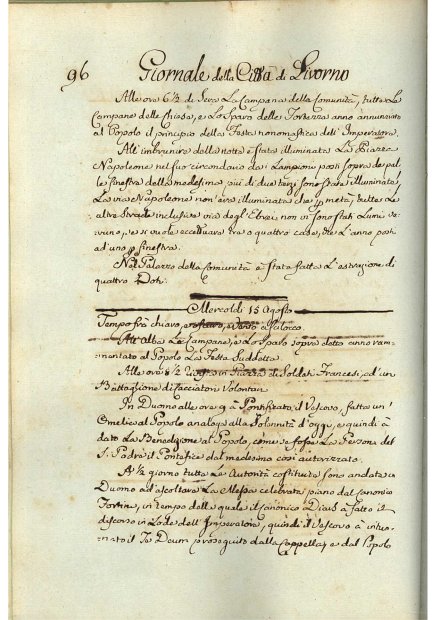 96 Giornale della Città di Livorno
Alle ore 6½ di Sera La Campana della Comunità, tutte Le
Campane delle Chiese, e Lo Sparo delle Fortezze anno annunziato
al Popolo il principio della Festa nonomastica dell' Imperatore.
All' imbrunire della notte è stata illuminata La Piazza
Napoleone nel suo circondario dai Lampioni posti sopra
finestra della medesima, più di due terzi sono state illuminate,
La via Napoleone non era illuminata che p metà, tutte Le
altre Strade incluse via degl' Ebrei non vi sono stati Lumi ve-
runo, se si vuole eccettuare tre o quattro case, che L'anno posti
ad uno p finestra.
Nel Palazzo della Comunità è stata fatta L'estrazione di
quattro Doti.
Mercoldi 15 Agosto
Tempo frà chiaro, e oscuro, e Vento a Scilocco.
All' Alba Le Campane, e Lo Sparo sopra detto anno ram-
mentato al Popolo La Festa Suddetta.
Alle ore 8½ in Piazza di Soldati Francesi, ed un
Battaglione di Cacciatori Volontari
In Duomo alle ore 9 à Pontificato il Vescovo, fatto un'
Omelia al Popolo analoga alla Solennità d'oggi, e quindi à
dato La Benedizione al Popolo, come se fosse La Persona del
S. Padre il Pontefice dal medesimo così autorizzato.
A ½ giorno tutte Le Autorità costituite sono andate in
Duomo ad ascoltare La Messa celebrata piano dal Canonico
in tempo della quale il Canonico à fatto il
discorso in Lode dell' Imperatore, quindi il Vescovo à intuo-
nato il Te Deum proseguito dalla Cappella, e dal Popolo